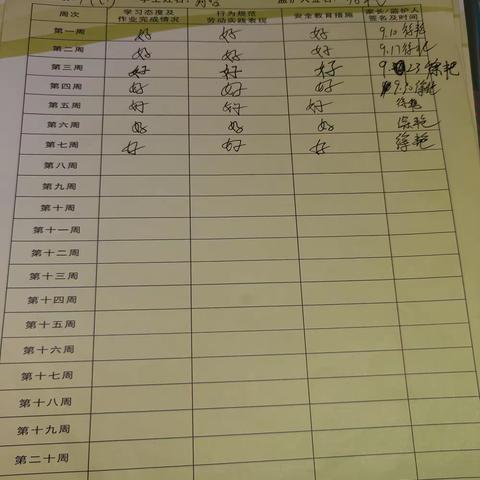 周次 学习态度及作业完成情况 行为规范劳动实践表现 安全教育措施 家长/监护人签名及时间
第一周 好 好 好 9.10 徐艳
第二周 好 好 好 9.17 徐艳
第三周 好 好 好 9 23 徐艳
第四周 好 好 好 9.30 徐艳
第五周 好 好 好 徐艳
第六周 好 好 好 徐艳
第七周 好 好 好 徐艳
第八周
第九周
第十周
第十一周
第十二周
第十三周
第十四周
第十五周
第十六周
第十七周
第十八周
第十九周
第二十周